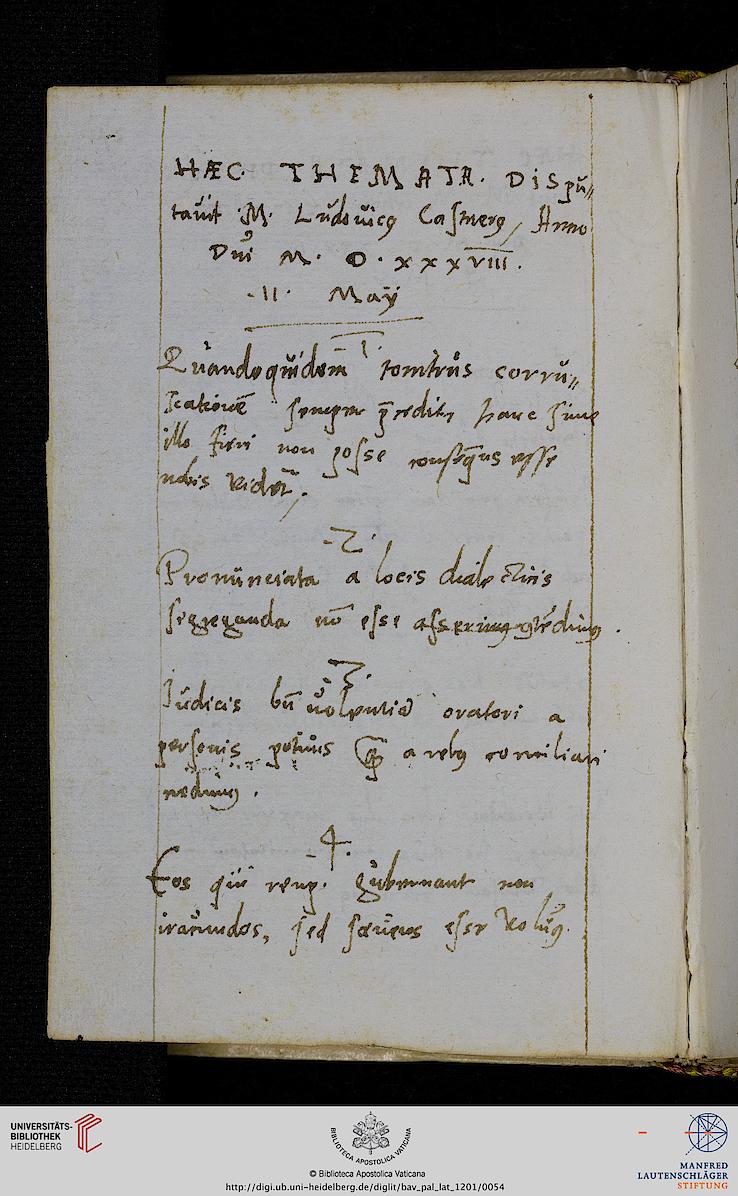 HÆC THEMATA. Dispu„
tauit M. Ludouicꝯ Anno
Dni M. D. xxxviii.
.11. Maÿ
1.
Quandoquidem tonitrus corru„
scationē semper hanc sine
illo fieri non posse esse
nobis videt̃.
.2.
Pronunciata a locis dialecticis
segreganda nō esse
.3.
Iudicis oratori a
personis potius a rebꝯ conciliari
.4.
Eos qui gubernant non
iracundos, sed seueros esse volumꝯ.
UNIVERSITÄTS-
BIBLIOTHEK
HEIDELBERG
BIBLIOTECA APOSTOLICA VATICANA
© Biblioteca Apostolica Vaticana
http://digi.ub.uni-heidelberg.de/diglit/bav_pal_lat_1201/0054
MANFRED
LAUTENSCHLÄGER
STIFTUNG